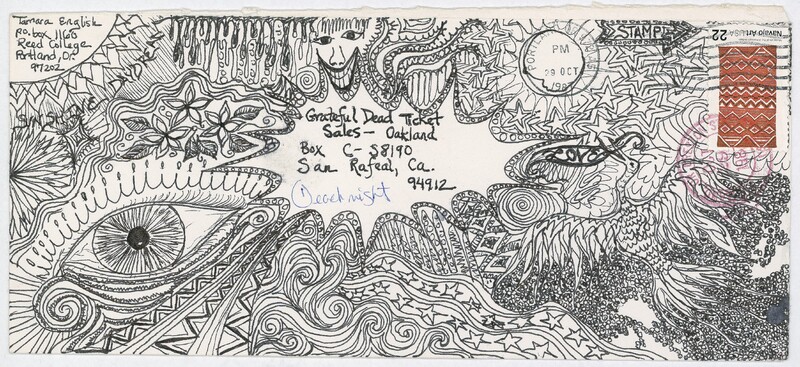 Tamara English
P.O. box 1160
Reed College
Portland, Or.
97202
SUNSHINE
PORTLAND
PM
29 OCT
STAMP
Navajo Art USA 22
Grateful Dead Ticket
Sales - Oakland
Box C-S8190
San Rafeal, Ca.
94912